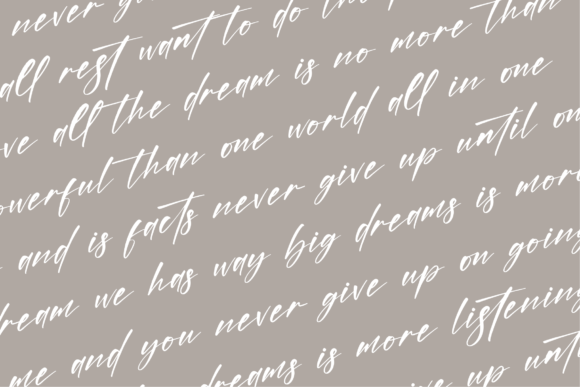 never
all rest want to do the
all the dream is no more than
powerful than one world all in one
and is facts never give up until on
dream we has way big dreams is more
me and you never give up on going
dreams is more listening
up